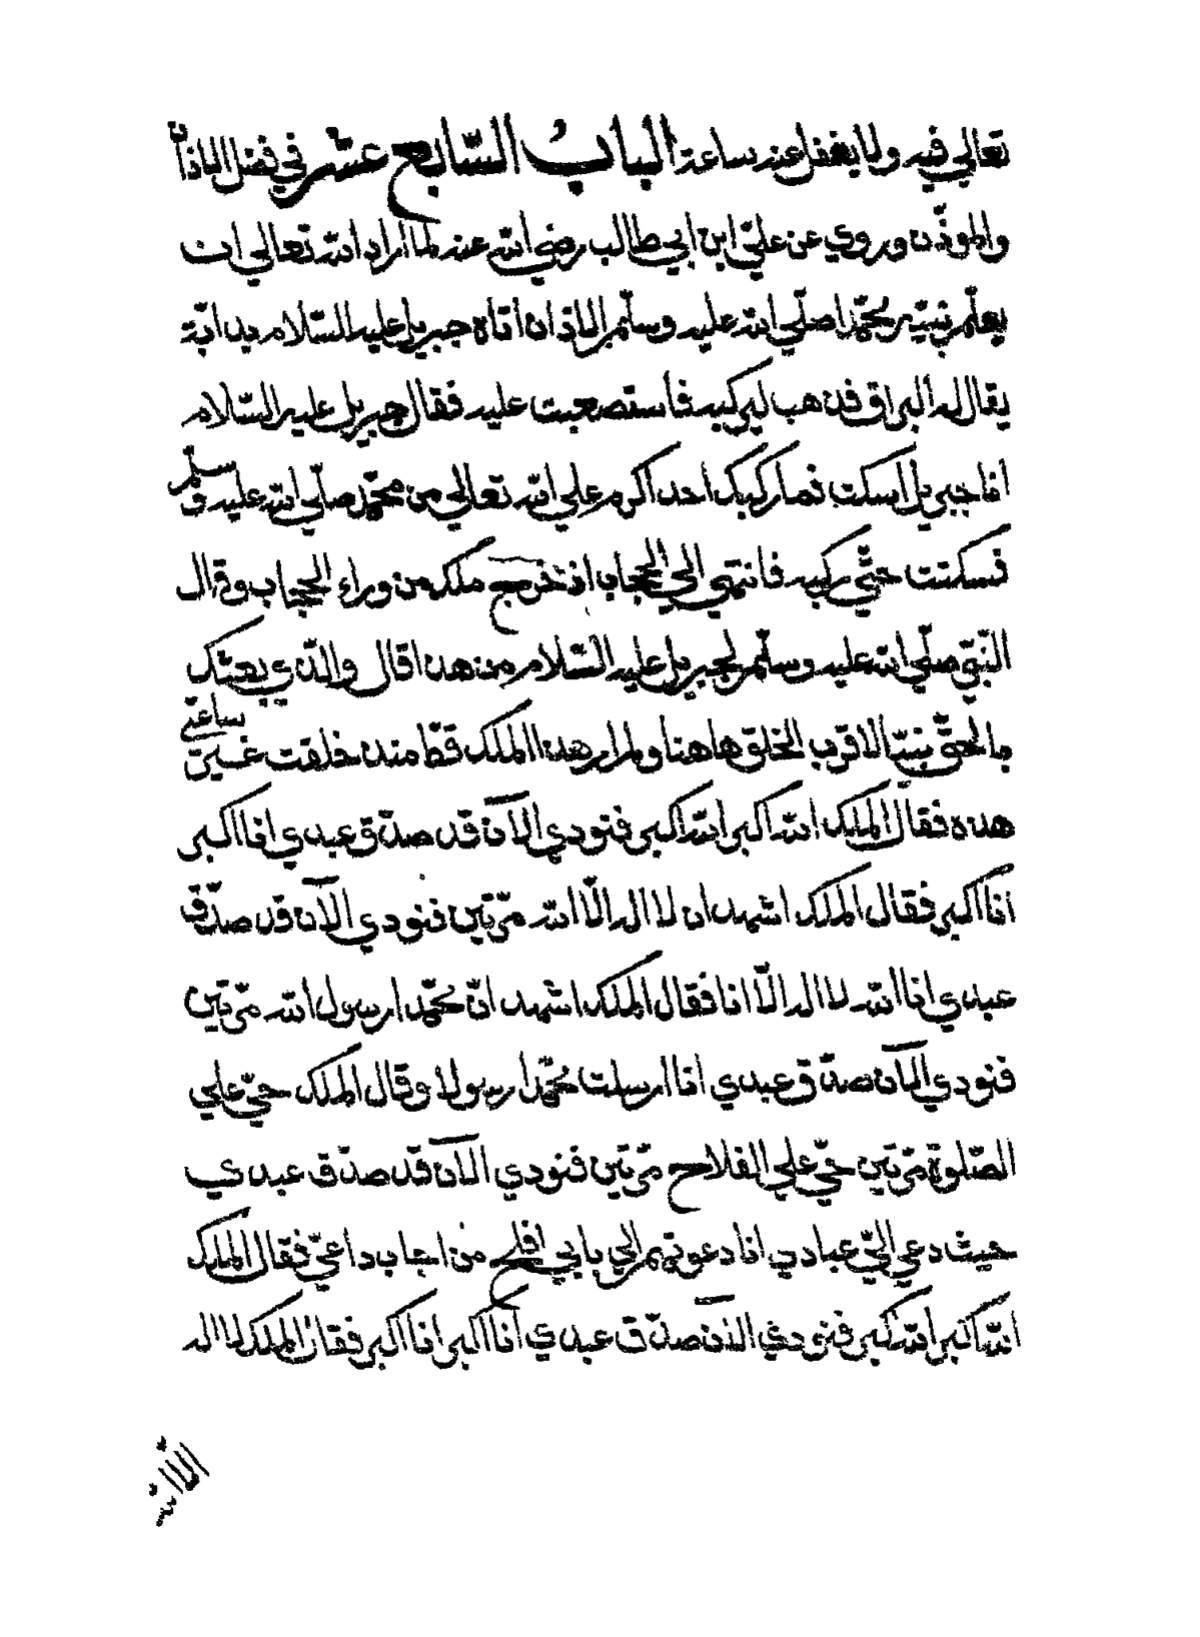 تعالي فيه ولا يغفل عنه ساعة الباب السّابع عشر في فضل الاذان
والموذّن وروي عن عليّ ابن ابي طالب رضي الله عنه لما اراد الله تعالي ان
يعلّم نبيّه محمّدا صلّي الله عليه وسلّم الاذان اتاه جبريل عليه السّلام بدابّة
يقال له البراق فذهب ليركبه فأستصعبت عليه فقال جبريل عليه السّلام
انا جبريل اسكت فما ركبك احد اكرم علي الله تعالي من محمّد صلّي الله عليه و سلّم
فسكتت حتّي ركبه فانتهي الي الحجاب اذ خرج ملك من وراء الحجاب وقال
النّبيّ صلّي الله عليه وسلّم لجبريل عليه السّلام من هذا قال والّذي بعثك
بالحقّ نبيّا لاقرب الخلق هاهنا ولم ار هذا الملك قطّ منذ خلقت غير ساعتي
هذه فقال الملك الله اكبر الله اكبر فنودي الآن قد صدّق عبدي انا اكبر
انا اكبر فقال الملك اشهد ان لا اله الّا الله مرّتين فنودي الآن قد صدّق
عبدي انا الله لا اله الّا انا فقال الملك اشهد انّ محمّدا رسول الله مرّتين
فنودي الآن صدّق عبدي انا ارسلت محمّدا رسولا وقال الملك حيّ علي
الصّلوة مرّتين حيّ علي الفلاح مرّتين فنودي الآن قد صدّق عبدي
حيث دعي اليّ عبادي انا دعوتهم الي بابي افلح من اجاب داعيّ فقال الملك
الله اكبر الله اكبر فنودي الآن صدّق عبدي انا اكبر انا اكبر فقال الملك لا اله
الّا الله